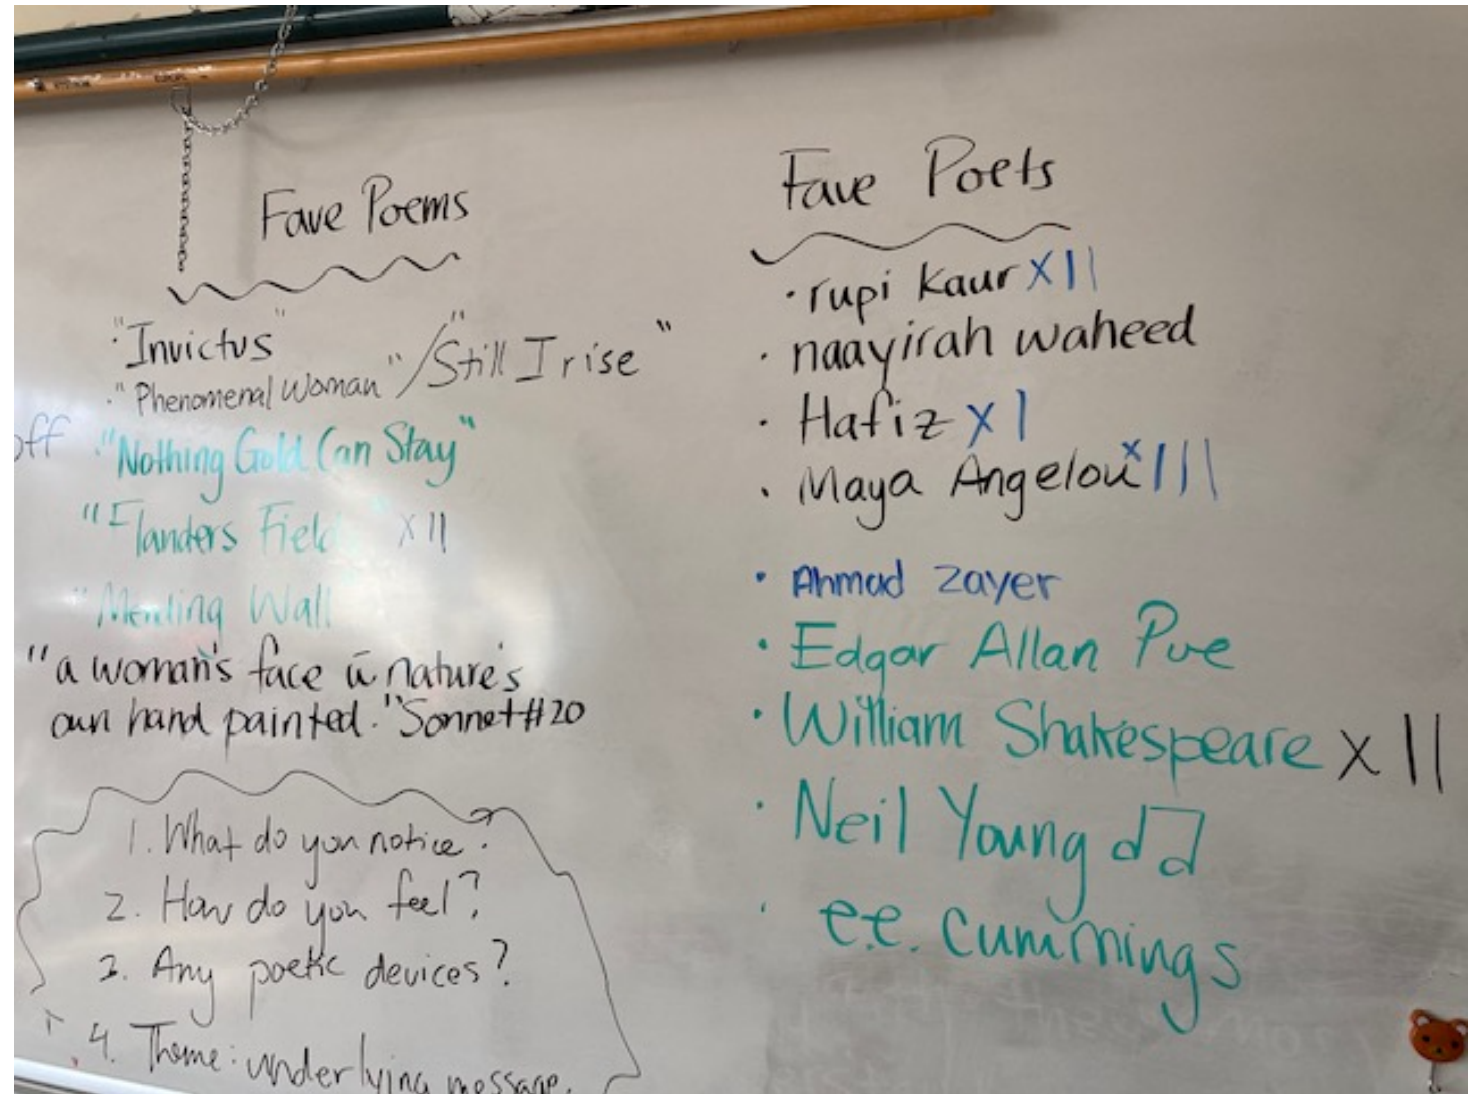 Fave Poems
"Invictus"
"Phenomenal Woman" / "Still I rise"
off
"Nothing Gold Can Stay"
"Flanders Field" x II
"Mending Wall
"a woman's face w nature's
own hand painted." Sonnet #20
1. What do you notice?
2. How do you feel?
3. Any poetic devices?
4. Theme: underlying message.
Fave Poets
· rupi kaur x II
· naayirah waheed
· Hafiz x I
· Maya Angelou x III
· Ahmad Zayer
· Edgar Allan Poe
· William Shakespeare x II
· Neil Young
· e.e. cummings